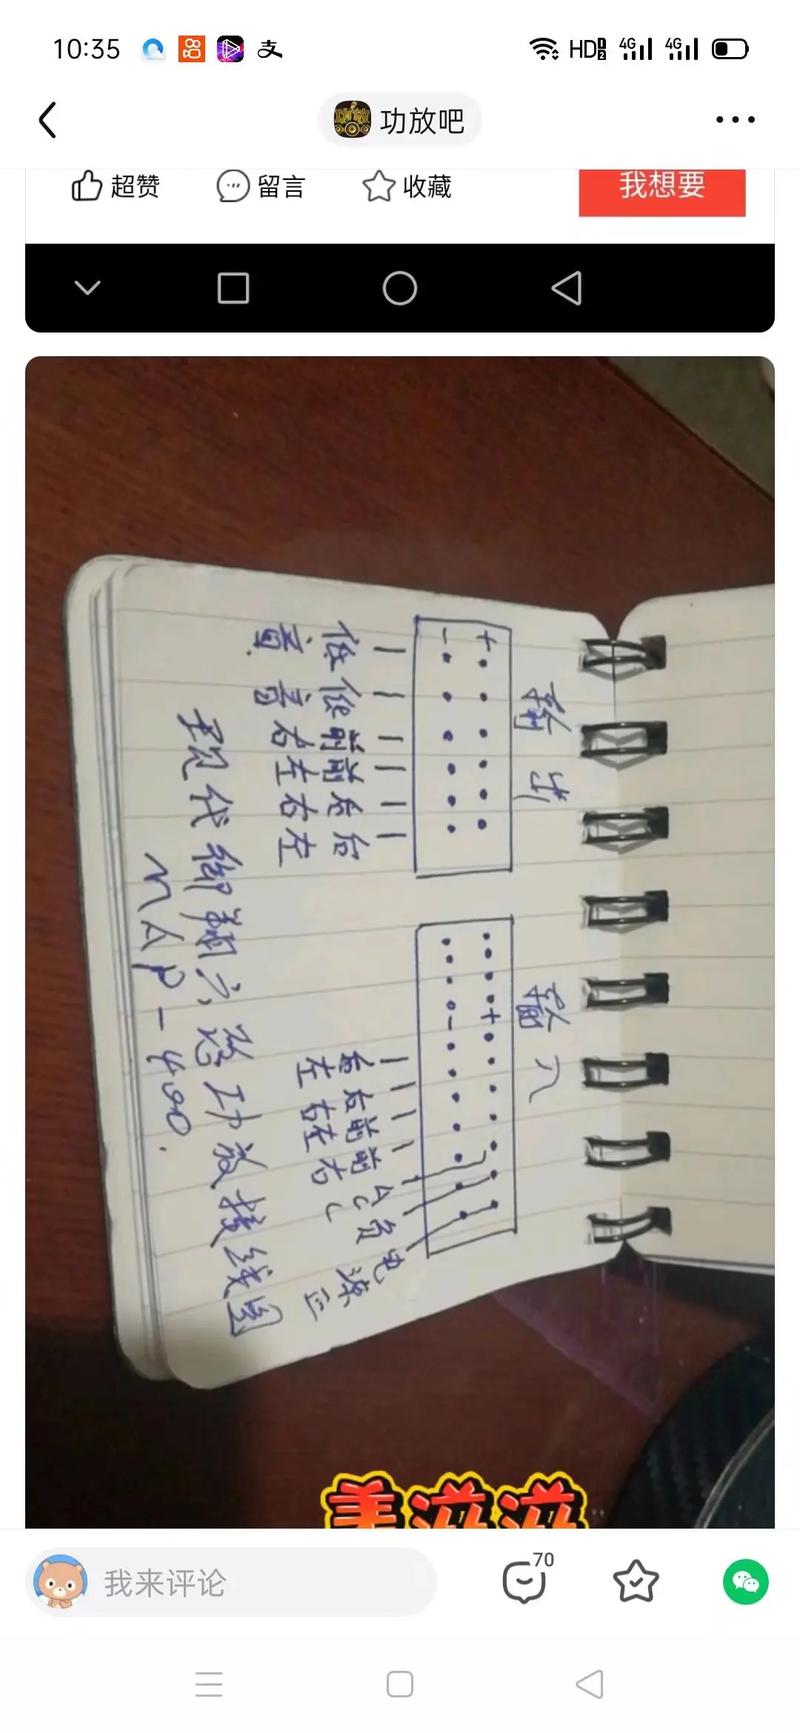 10:35
HD
4G
4G
功放吧
超赞
留言
收藏
我想要
输出
+
-
低音
低音
前右
前左
后右
后左
输入
+
-
后左
后右
前左
前右
ACC
负
电源正
现代御翔六路功放接线图
MAP-400.
美滋滋
我来评论
70